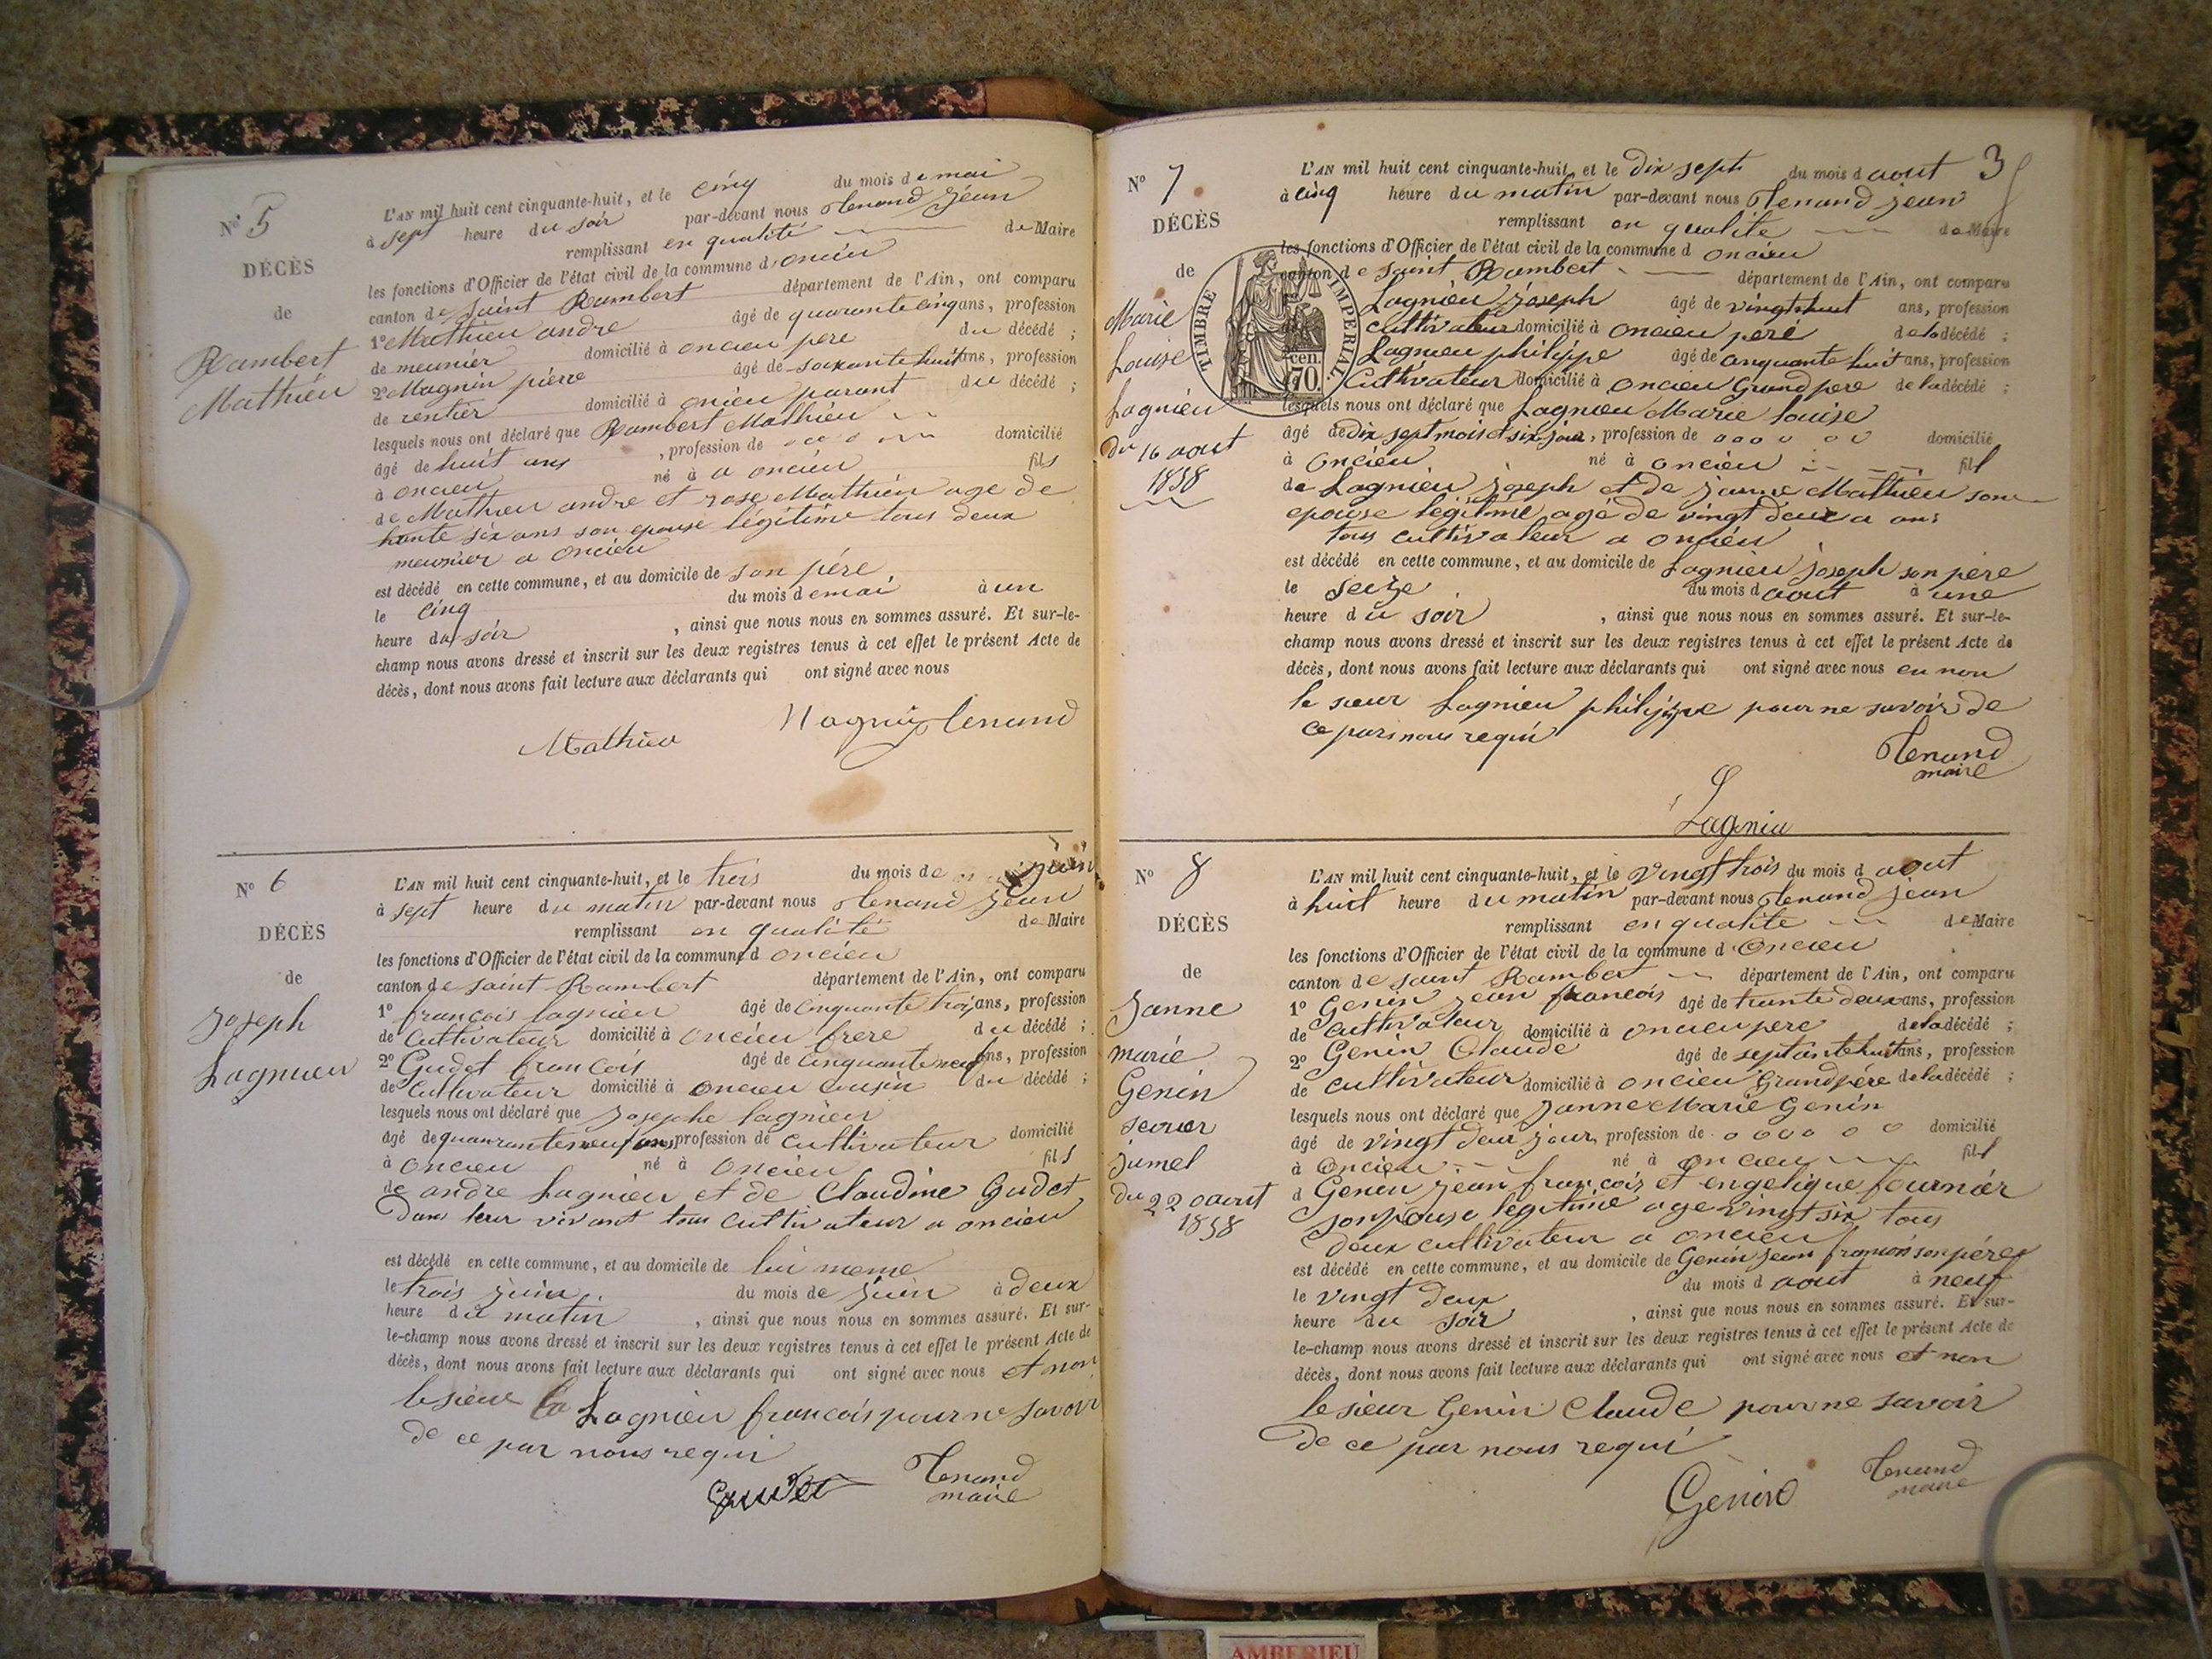 Nº 5
DÉCÈS
de
Rambert
Mathieu
L'AN mil huit cent cinquante-huit, et le cinq du mois de mai
à sept heure du soir par-devant nous Tenand Jean
remplissant en qualité de Maire
les fonctions d'Officier de l'état civil de la commune d oncieu
canton de Saint Rambert département de l'Ain, ont comparu
1º Mathieu andre âgé de quarante cinq ans, profession
de meunier domicilié à oncieu pere du décédé ;
2º Magnin pierre âgé de soixante huit ans, profession
de rentier domicilié à onieu parant du décédé ;
lesquels nous ont déclaré que Rambert Mathieu
âgé de huit ans , profession de domicilié
à oncieu né à a oncieu fils
de Mathieu andre et rose Mathieu age de
trante six ans son epouse légitime tous deux
meunier a oncieu
est décédé en cette commune, et au domicile de son pére
le cinq du mois de mai à un
heure du soir , ainsi que nous nous en sommes assuré. Et sur-le-
champ nous avons dressé et inscrit sur les deux registres tenus à cet effet le présent Acte de
décès, dont nous avons fait lecture aux déclarants qui ont signé avec nous
Mathieu Magnin Tenand
Nº 6
DÉCÈS
de
Joseph
Lagnieu
L'AN mil huit cent cinquante-huit, et le trois du mois de juin
à sept heure du matin par-devant nous Tenand Jean
remplissant en qualité de Maire
les fonctions d'Officier de l'état civil de la commune d oncieu
canton de Saint Rambert département de l'Ain, ont comparu
1º françois lagnieu âgé de cinquante trois ans, profession
de Cultivateur domicilié à oncieu frere du décédé ;
2º Gudet francois âgé de cinquante neuf ans, profession
de Cultivateur domicilié à oncieu cousin du décédé ;
lesquels nous ont déclaré que Josephe lagnieu
âgé de quanrante neuf ans, profession de cultivateur domicilié
à oncieu né à oncieu fils
de andre Lagnieu et de Claudine Gudet
Dans leur vivant tous cultivateur a oncieu
est décédé en cette commune, et au domicile de lui meme
le trois juin du mois de juin à deux
heure du matin , ainsi que nous nous en sommes assuré. Et sur-
le-champ nous avons dressé et inscrit sur les deux registres tenus à cet effet le présent Acte de
décès, dont nous avons fait lecture aux déclarants qui ont signé avec nous et non
le sieur la Lagnieu francois pour ne savoir
de ce par nous requi
Gudet Tenand
maire
3
Nº 7
DÉCÈS
de
Marie
Louise
Lagnieu
du 16 aout
1858
TIMBRE IMPERIAL
2 cen.
70.
L'AN mil huit cent cinquante-huit, et le dix sept du mois d aout
à cinq heure du matin par-devant nous Tenand jean
remplissant en qualite de Maire
les fonctions d'Officier de l'état civil de la commune d oncieu
canton de Saint Rambert département de l'Ain, ont comparu
Lagnieu joseph âgé de vingt huit ans, profession
Cultivateur domicilié à oncieu peré de la décédé ;
Lagnieu philippe âgé de cinquante huit ans, profession
Cultivateur domicilié à oncieu Grand pere de la décédé ;
lesquels nous ont déclaré que Lagnieu Marie louise
âgé de dix sept mois et six jour, profession de domicilié
à oncieu né à oncieu fill
de Lagnieu joseph et de janne Mathieu son
epouse légitimé agé de vingt deux a ans
tous cultivateur a oncieu
est décédé en cette commune, et au domicile de Lagnieu joseph son père
le seize du mois d aout à une
heure du soir , ainsi que nous nous en sommes assuré. Et sur-le-
champ nous avons dressé et inscrit sur les deux registres tenus à cet effet le présent Acte de
décès, dont nous avons fait lecture aux déclarants qui ont signé avec nous eu non
le sieur Lagnieu philippe pour ne savoir de
ce par nous requi
Tenand
maire
Lagnieu
Nº 8
DÉCÈS
de
Janne
marie
Genin
jumel
du 22 aout
1858
L'AN mil huit cent cinquante-huit, et le vingt trois du mois d aout
à huit heure du matin par-devant nous Tenand jean
remplissant en qualite de Maire
les fonctions d'Officier de l'état civil de la commune d oncieu
canton de saint Rambert département de l'Ain, ont comparu
1º Genin jean francois âgé de trante deux ans, profession
de cultivateur domicilié à oncieu pere de la décédé ;
2º Genin Claude âgé de septante huit ans, profession
de cultivateur domicilié à oncieu Grand pére de la décédé ;
lesquels nous ont déclaré que Janne Marie Genin
âgé de vingt deux jour, profession de domicilié
à oncieu né à oncieu fill
d Genin jean francois et engelique fournier
son epouse legitime age vingt six tous
deux cultivateur a oncieu
est décédé en cette commune, et au domicile de Genin jean francois son père
le vingt deux du mois d aout à neuf
heure du soir , ainsi que nous nous en sommes assuré. Et sur-
le-champ nous avons dressé et inscrit sur les deux registres tenus à cet effet le présent Acte de
décès, dont nous avons fait lecture aux déclarants qui ont signé avec nous et non
le sieur Genin Claude pour ne savoir
de ce par nous requi
Genin Tenand
maire
AMBERIEU